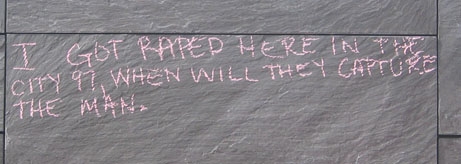 I GOT RAPED HERE IN THE
CITY 97, WHEN WILL THEY CAPTURE
THE MAN.